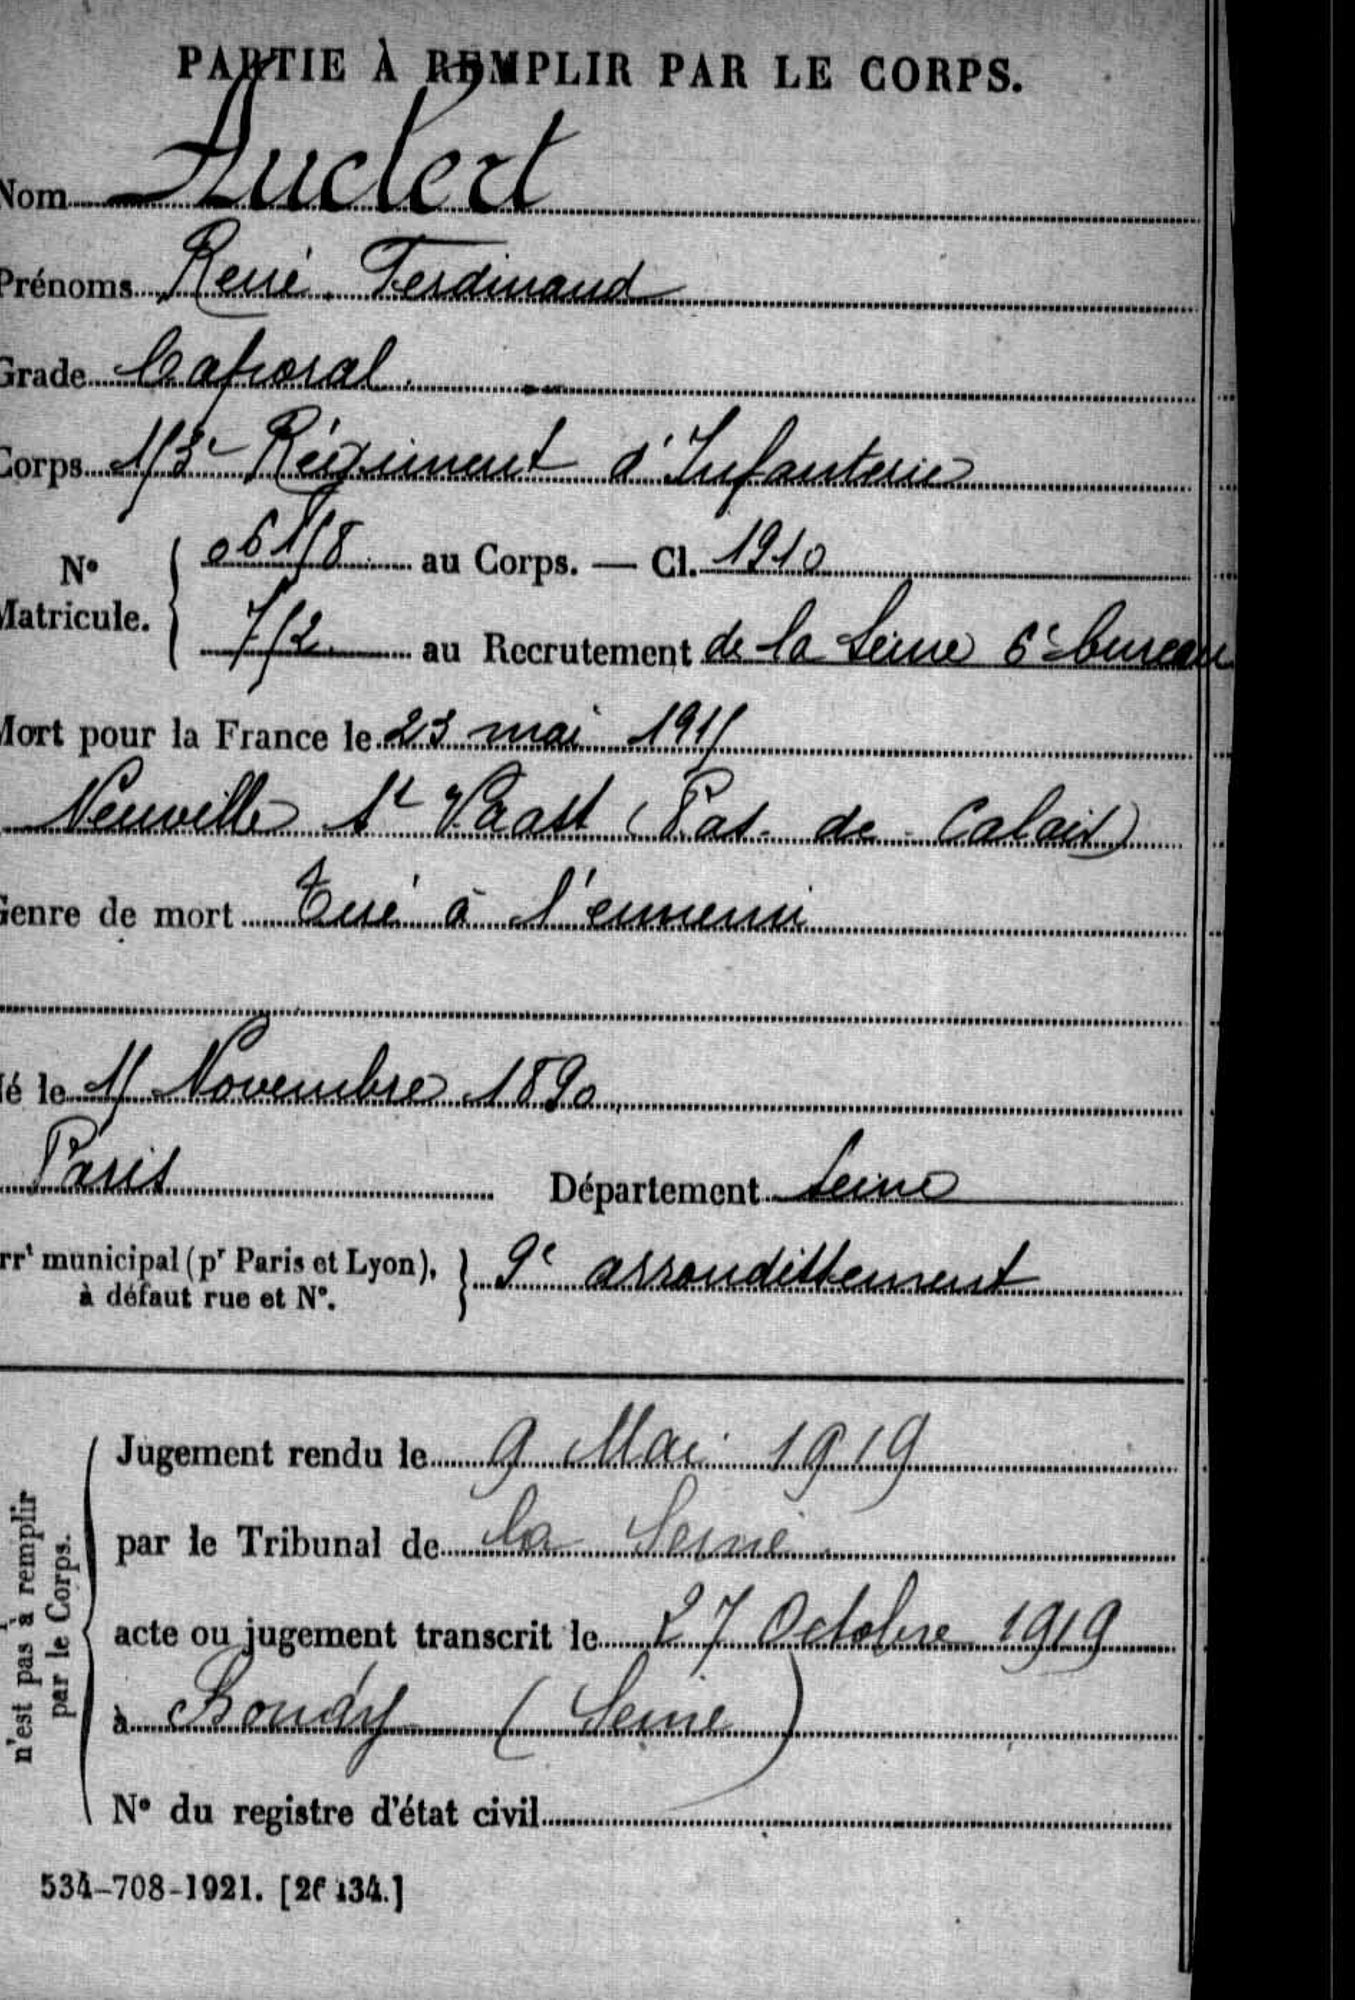 PARTIE À REMPLIR PAR LE CORPS.
Nom Auclert
Prénoms René Ferdinand
Grade Caporal
Corps 153e Régiment d'Infanterie
N° Matricule.
06158 au Corps. — Cl. 1910
752 au Recrutement de la Seine 6e bureau
Mort pour la France le 23 mai 1915
Neuville St Vaast (Pas-de-Calais)
Genre de mort Tué à l'ennemi
é le 15 Novembre 1890
Paris Département Seine
rrt municipal (pr Paris et Lyon), à défaut rue et N°. 9e arrondissement
n'est pas à remplir par le Corps.
Jugement rendu le 9 Mai 1919
par le Tribunal de la Seine
acte ou jugement transcrit le 27 Octobre 1919
à Bondy (Seine)
N° du registre d'état civil
534-708-1921. [26434.]